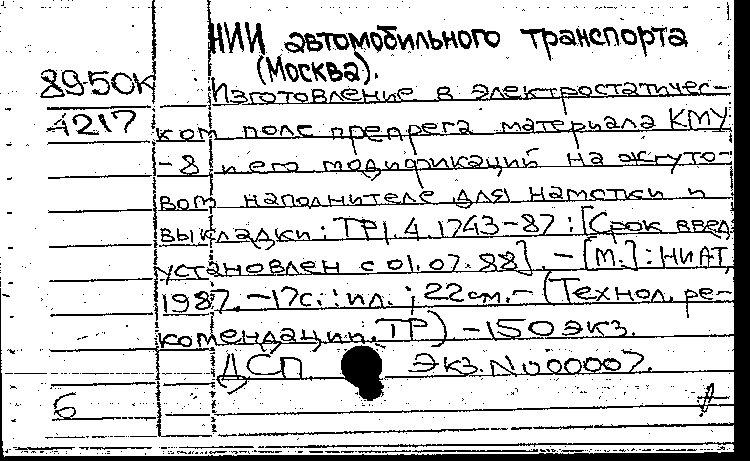 НИИ автомобильного транспорта
(Москва).
8950к
Изготовление в электростатичес-
4217
ком поле препрега материала КМУ
-8 и его модификаций на жгуто-
вом наполнителе для намотки и
выкладки: ТР1.4.1743-87: [Срок введ
установлен с 01.07.88]. - [М.]: НИАТ,
1987. - 17с.: ил.; 22см. - (Технол. ре-
комендации. ТР). - 150 экз.
ДСП Экз. N 000007.
6